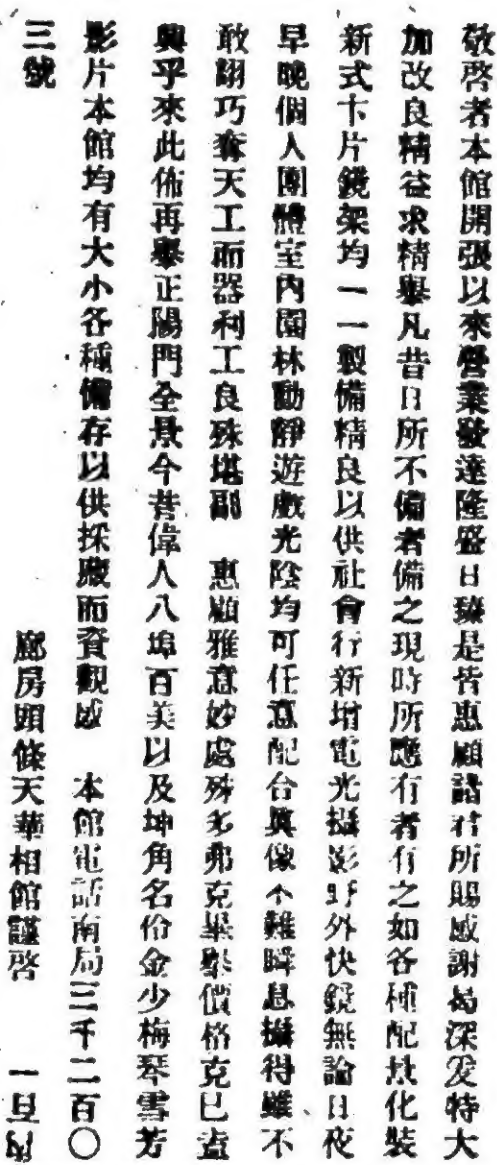 敬啓者本館開張以來營業發達隆盛日臻是皆惠顧諸君所賜感謝曷深爰特大
加改良精益求精舉凡昔日所不備者備之現時所應有者有之如各種配景化裝
新式卡片鏡架均一一製備精良以供社會行新增電光攝影野外快鏡無論日夜
早晚個人團體室內園林動靜遊戲光陰均可任意配合真像不難瞬息攝得雖不
敢翻巧奪天工而器利工良殊堪副 惠顧雅意妙處殊多弗克畢舉價格克已盍
興乎來此佈再舉正陽門全景今昔偉人八埠百美以及坤角名伶金少梅琴雪芳
影片本館均有大小各種備存以供採購而資觀感 本館電話南局三千二百〇
三號 廊房頭條天華相館謹啓 一旦內